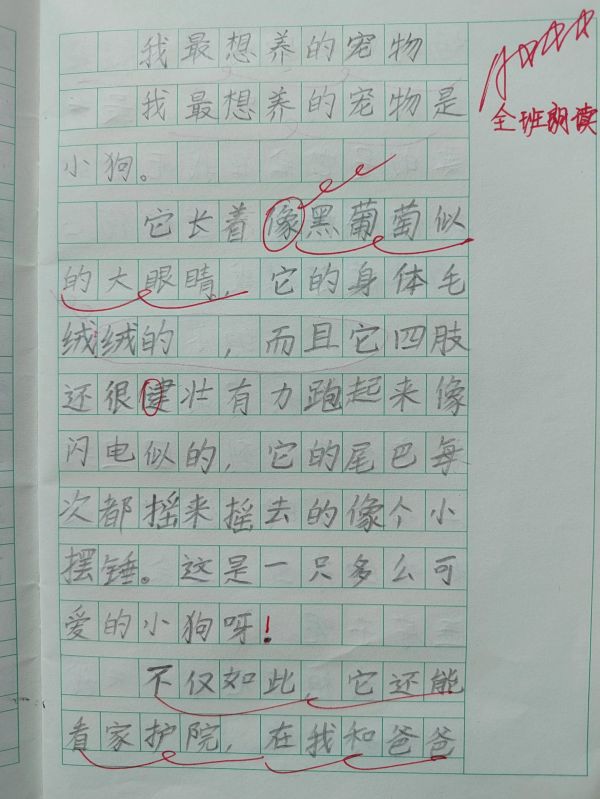 我最想养的宠物
我最想养的宠物是
全班朗读
小狗。
它长着像黑葡萄似
的大眼睛，它的身体毛
绒绒的，而且它四肢
还很健壮有力跑起来像
闪电似的，它的尾巴每
次都摇来摇去的像个小
摆锤。这是一只多么可
爱的小狗呀！
不仅如此，它还能
看家护院，在我和爸爸